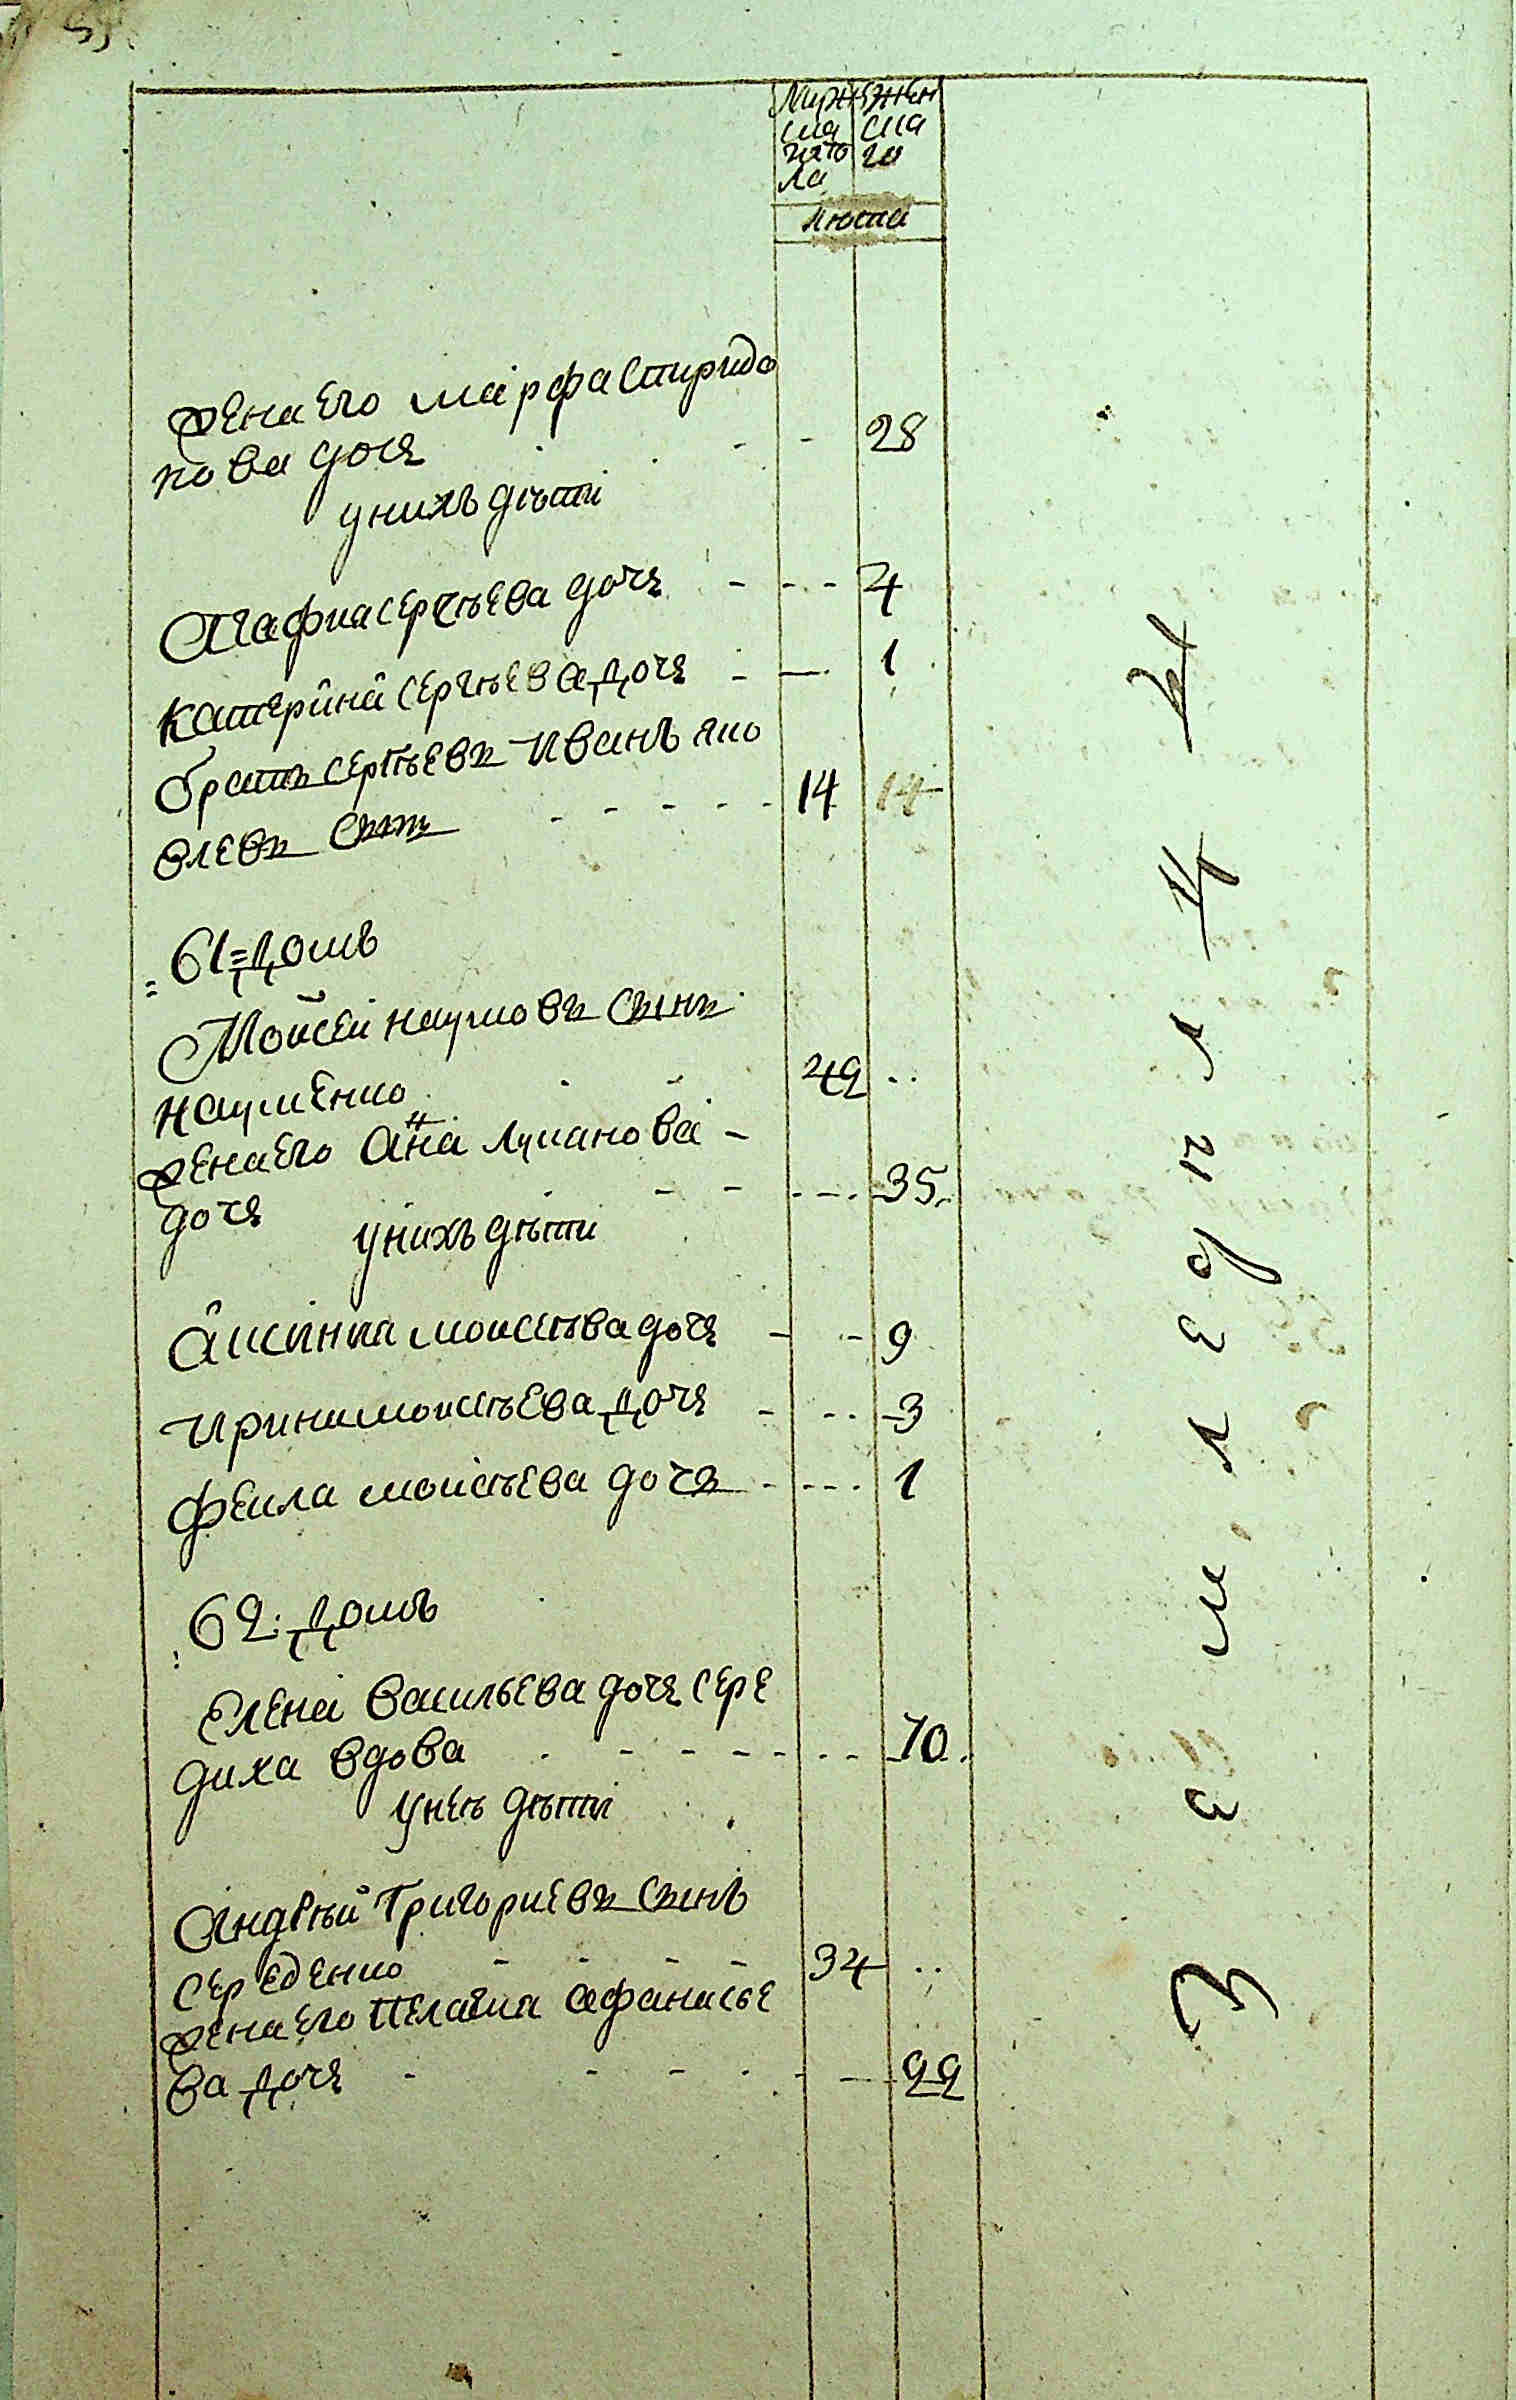 Мужеска Женска
пола го
лета
жена его марфа Спиридо
нова дочь 28
у нихъ дѣти
Агафия сергѣева дочь 4
катерина сергѣева дочь 1
братъ сергѣевъ Иванъ яко
влевъ сынъ 14 14
61 домъ
Моисей наумовъ сынъ
науменко 49
жена его Анна лукянова
дочь 35
у нихъ дѣти
Аксиния моисѣва дочь 9
Ирина моисѣева дочь 3
Фекла моисѣева дочь 1
62 домъ
Елена васильева дочь сере
диха вдова 70
у неѣ дѣти
Андрѣй Григориевъ сынъ
середенко 34
жена его Пелагия афанасье
ва дочь 29
Земледелцы